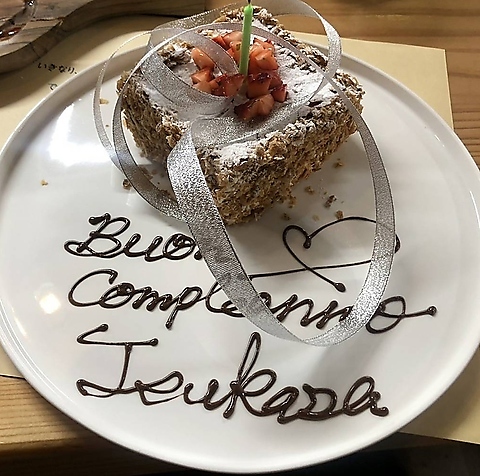 Buon
Compleanno
Tsukasa